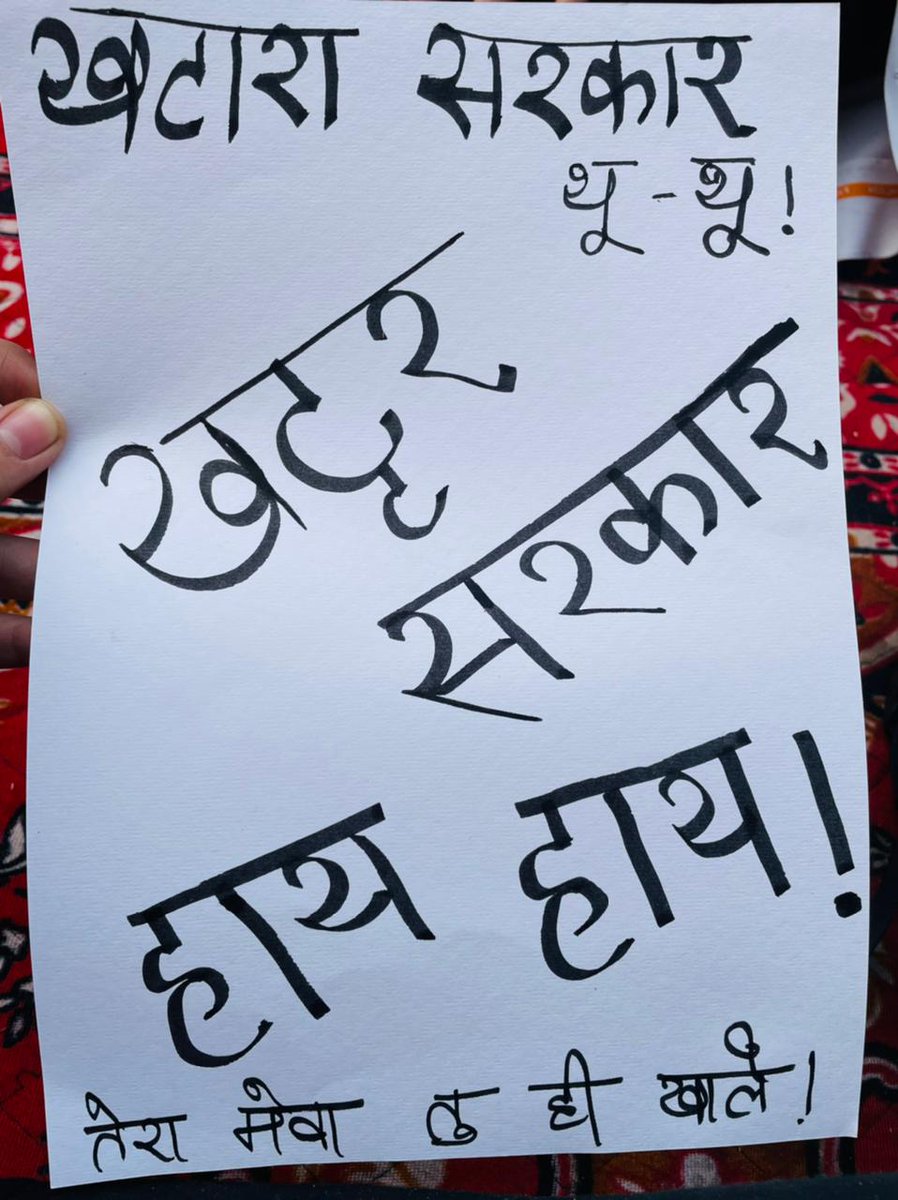 खटारा सरकार
थू - थू !
खट्टर
सरकार
हाय हाय !
तेरा मेवा तु ही खाले !